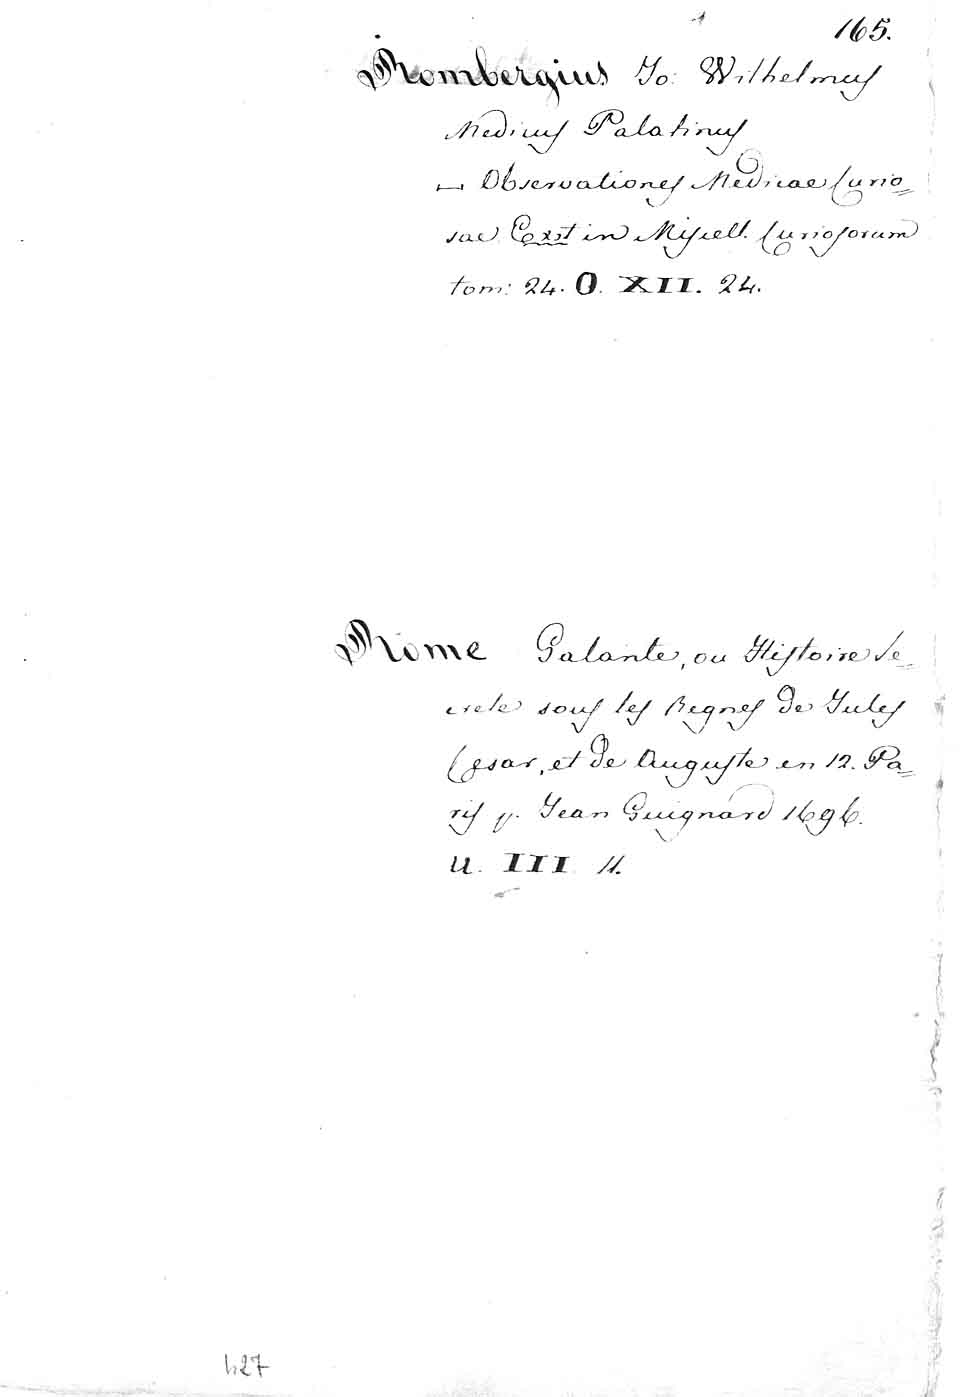 165.
Rombergius Jo: Wilhelmus
Medicus Palatinus
Observationes Medicae Curio=
sae Exst in Miscell. Curiosorum
tom: 24. O. XII. 24.
Rome Galante, ou Histoire Se=
crete sous les Regnes de Jules
Cesar, et de Auguste en 12. Pa=
ris p. Jean Guignard 1696.
U. III. 11.
427